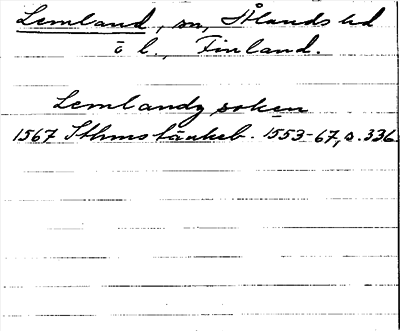 Lemland, sn, Ålands hd
ö l., Finland.
Lemlandz soken
1567 Sthms tänkeb. 1553-67, s. 336.